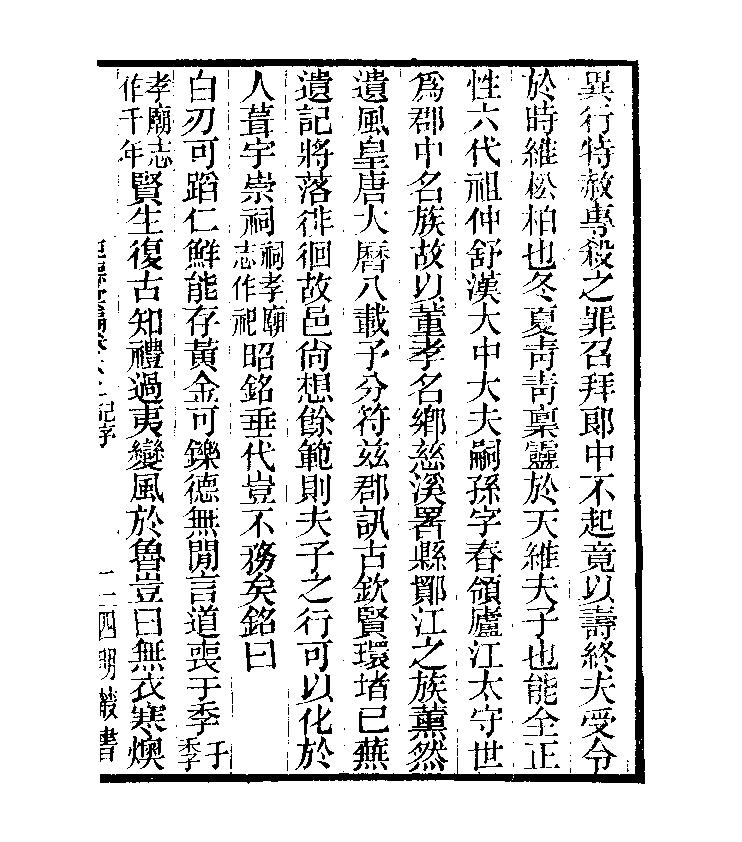 異行特赦專殺之罪召拜郎中不起竟以壽終夫受命
於時維松柏也冬夏靑靑稟靈於天維夫子也能全正
性六代祖仲舒漢大中大夫嗣孫字春領廬江太守世
爲郡中名族故以董孝名鄉慈溪署縣鄮江之族薰然
遺風皇唐大曆八載予分符兹郡訊古欽賢環堵已蕪
遺記將落徘徊故邑尙想餘範則夫子之行可以化於
人葺宇崇祠祠孝廟志作祀昭銘垂代豈不務矣銘曰
白刃可蹈仁鮮能存黃金可鑠德無閒言道喪于季于季
孝廟志作千年賢生復古知禮過夷變風於魯豈曰無衣寒燠
之 記序 四明叢書